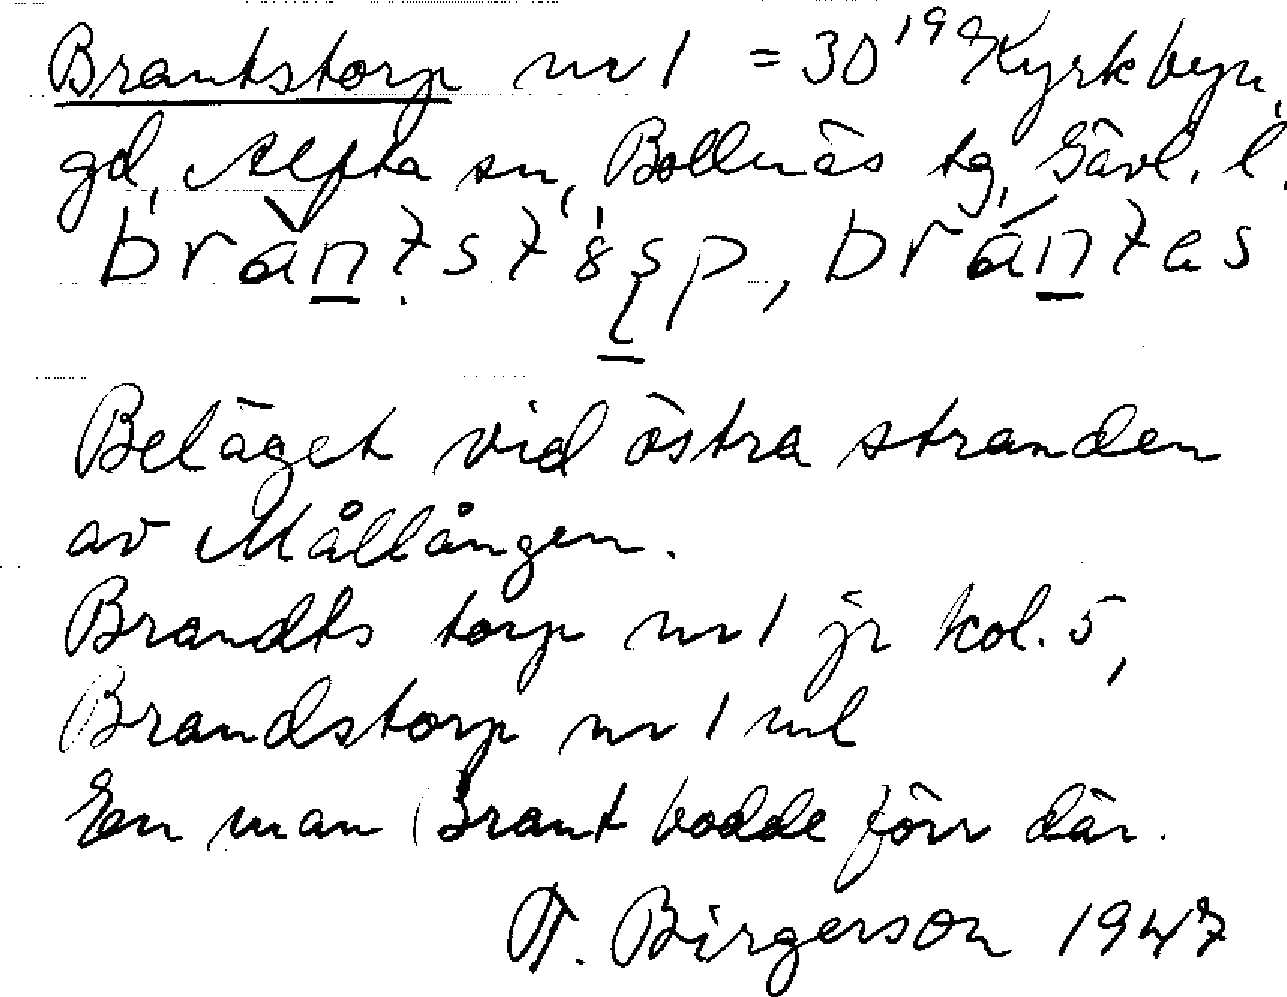 Brantstorp nr 1 = 30¹⁹ Kyrkbyn,
gd, Alfta sn, Bollnäs tg, Gävl. l.
Beläget vid östra stranden
av Mållången.
Brandts torp nr 1 jr kol. 5,
Brandstorp nr 1 ml
En man Brant bodde förr där.
T. Birgerson 1947